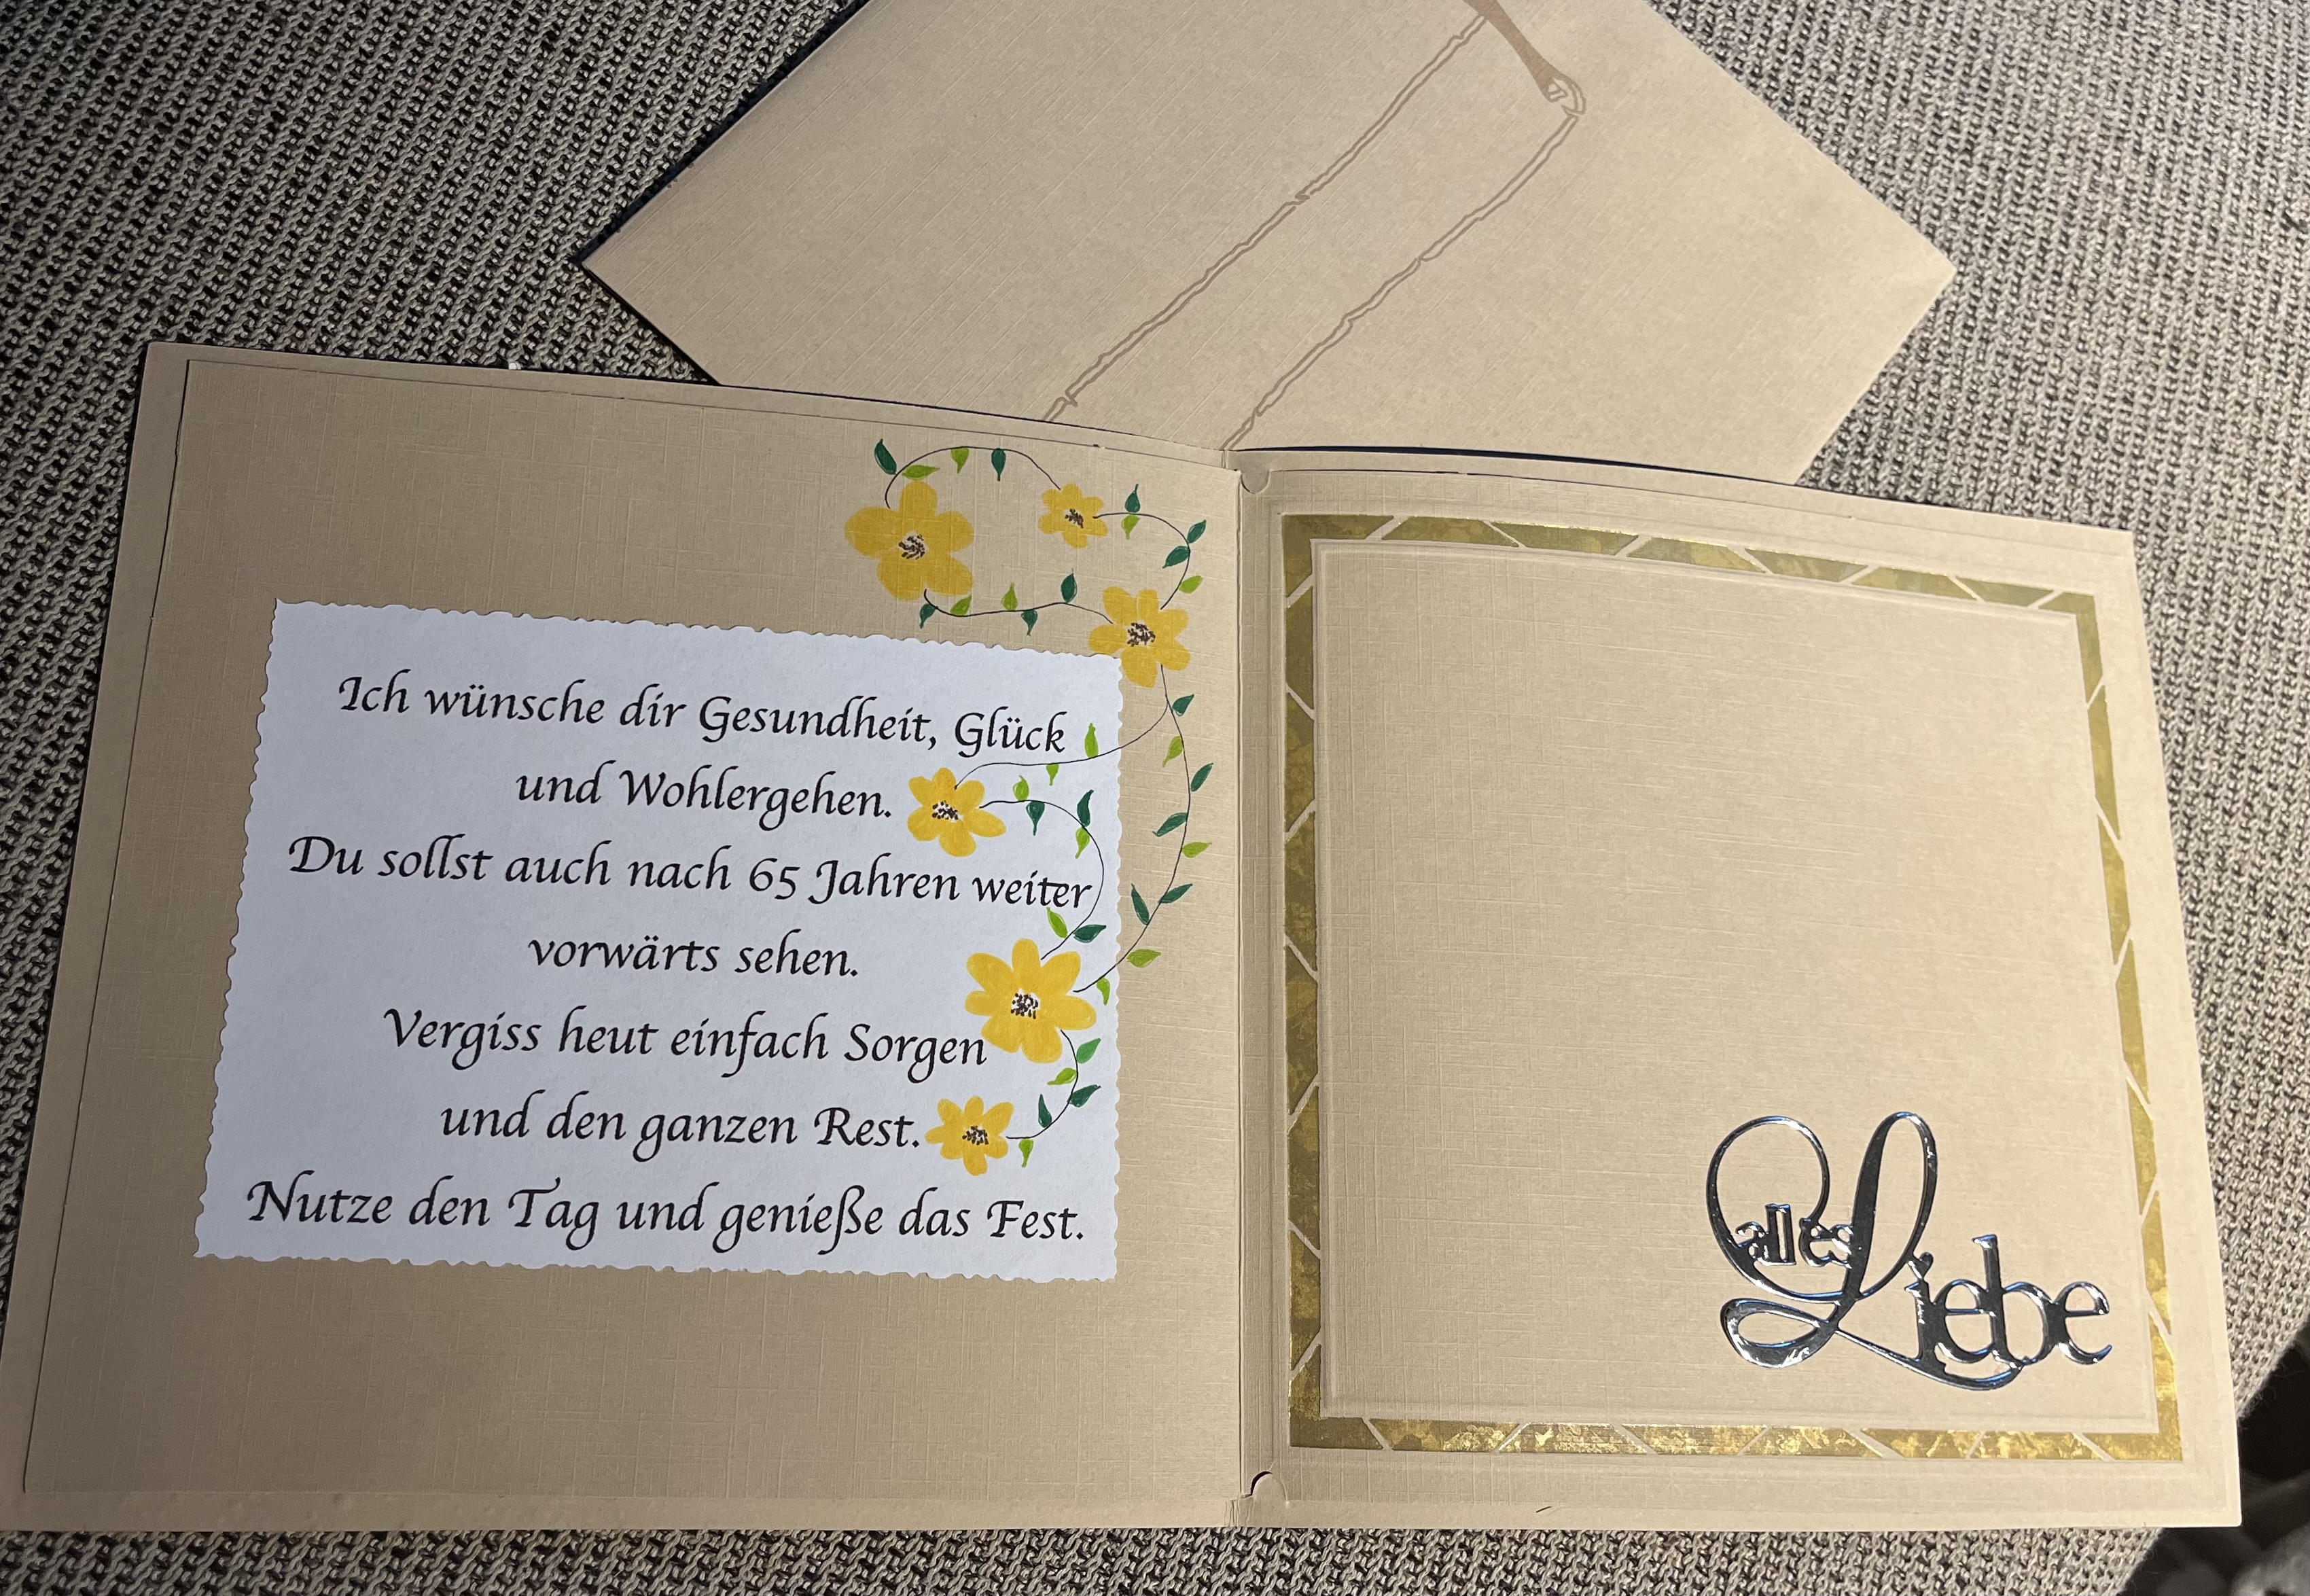 Ich wünsche dir Gesundheit, Glück
und Wohlergehen.
Du sollst auch nach 65 Jahren weiter
vorwärts sehen.
Vergiss heut einfach Sorgen
und den ganzen Rest.
Nutze den Tag und genieße das Fest.
alles
Liebe